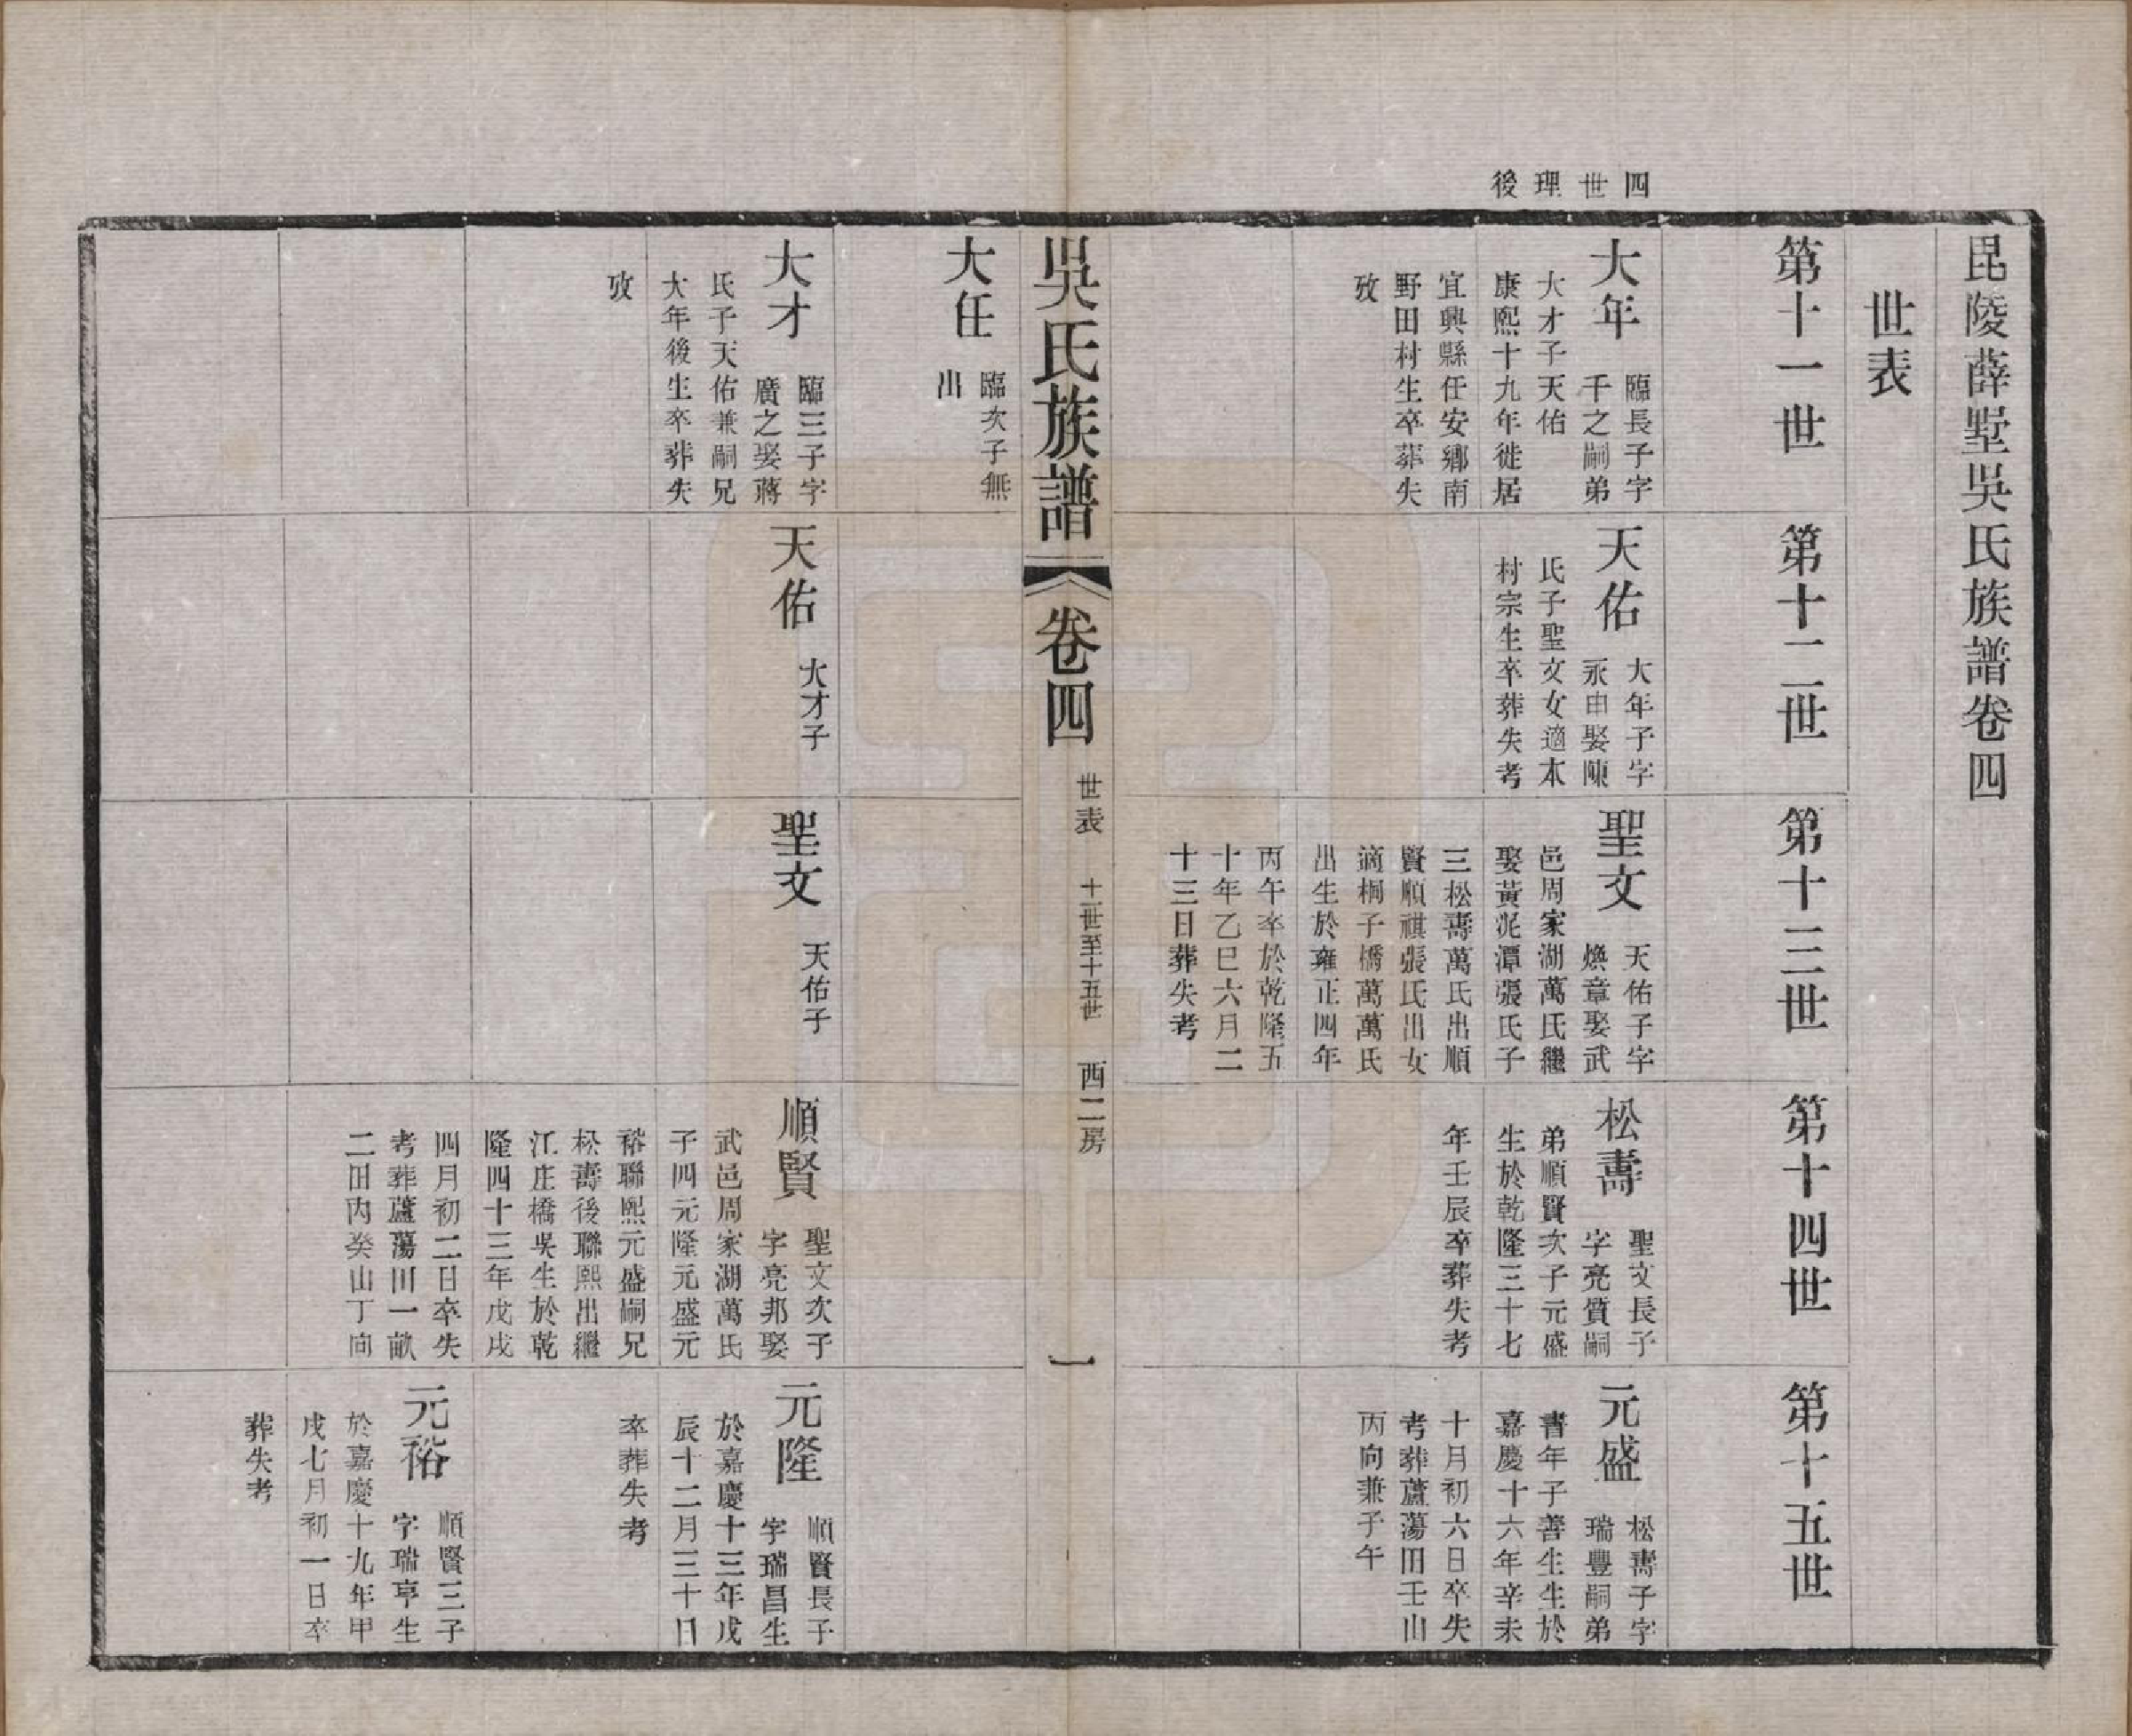 毘陵薛墅吳氏族譜卷四
世表
第十一世
第十二世
第十三世
第十四世
第十五世
四世理後
大年
臨長子字
千之嗣弟
大才子天佑
康熙十九年徙居
宜興縣任安鄉南
野田村生卒葬失
攷
天佑
大年子字
永申娶陳
氏子聖文女適本
村宗生卒葬失考
聖文
天佑子字
煥章娶武
邑周家湖萬氏繼
娶黃泥潭張氏子
三松壽萬氏出順
賢順祺張氏出女
適桐子橋萬萬氏
出生於雍正四年
丙午卒於乾隆五
十年乙巳六月二
十三日葬失考
松壽
聖文長子
字亮質嗣
弟順賢次子元盛
生於乾隆三十七
年壬辰卒葬失考
元盛
松壽子字
瑞豐嗣弟
書年子善生生於
嘉慶十六年辛未
十月初六日卒失
考葬蘆蕩田壬山
丙向兼子午
吳氏族譜
卷四
世表
十一世至十五世
西二房
一
大任
臨次子無
出
大才
臨三子字
廣之娶蔣
氏子天佑兼嗣兄
大年後生卒葬失
攷
天佑
大才子
聖文
天佑子
順賢
聖文次子
字亮邦娶
武邑周家湖萬氏
子四元隆元盛元
裕聯熙元盛嗣兄
松壽後聯熙出繼
江庄橋吳生於乾
隆四十三年戊戌
四月初二日卒失
考葬蘆蕩田一畝
二田內癸山丁向
元隆
順賢長子
字瑞昌生
於嘉慶十三年戊
辰十二月三十日
卒葬失考
元裕
順賢三子
字瑞亨生
於嘉慶十九年甲
戌七月初一日卒
葬失考